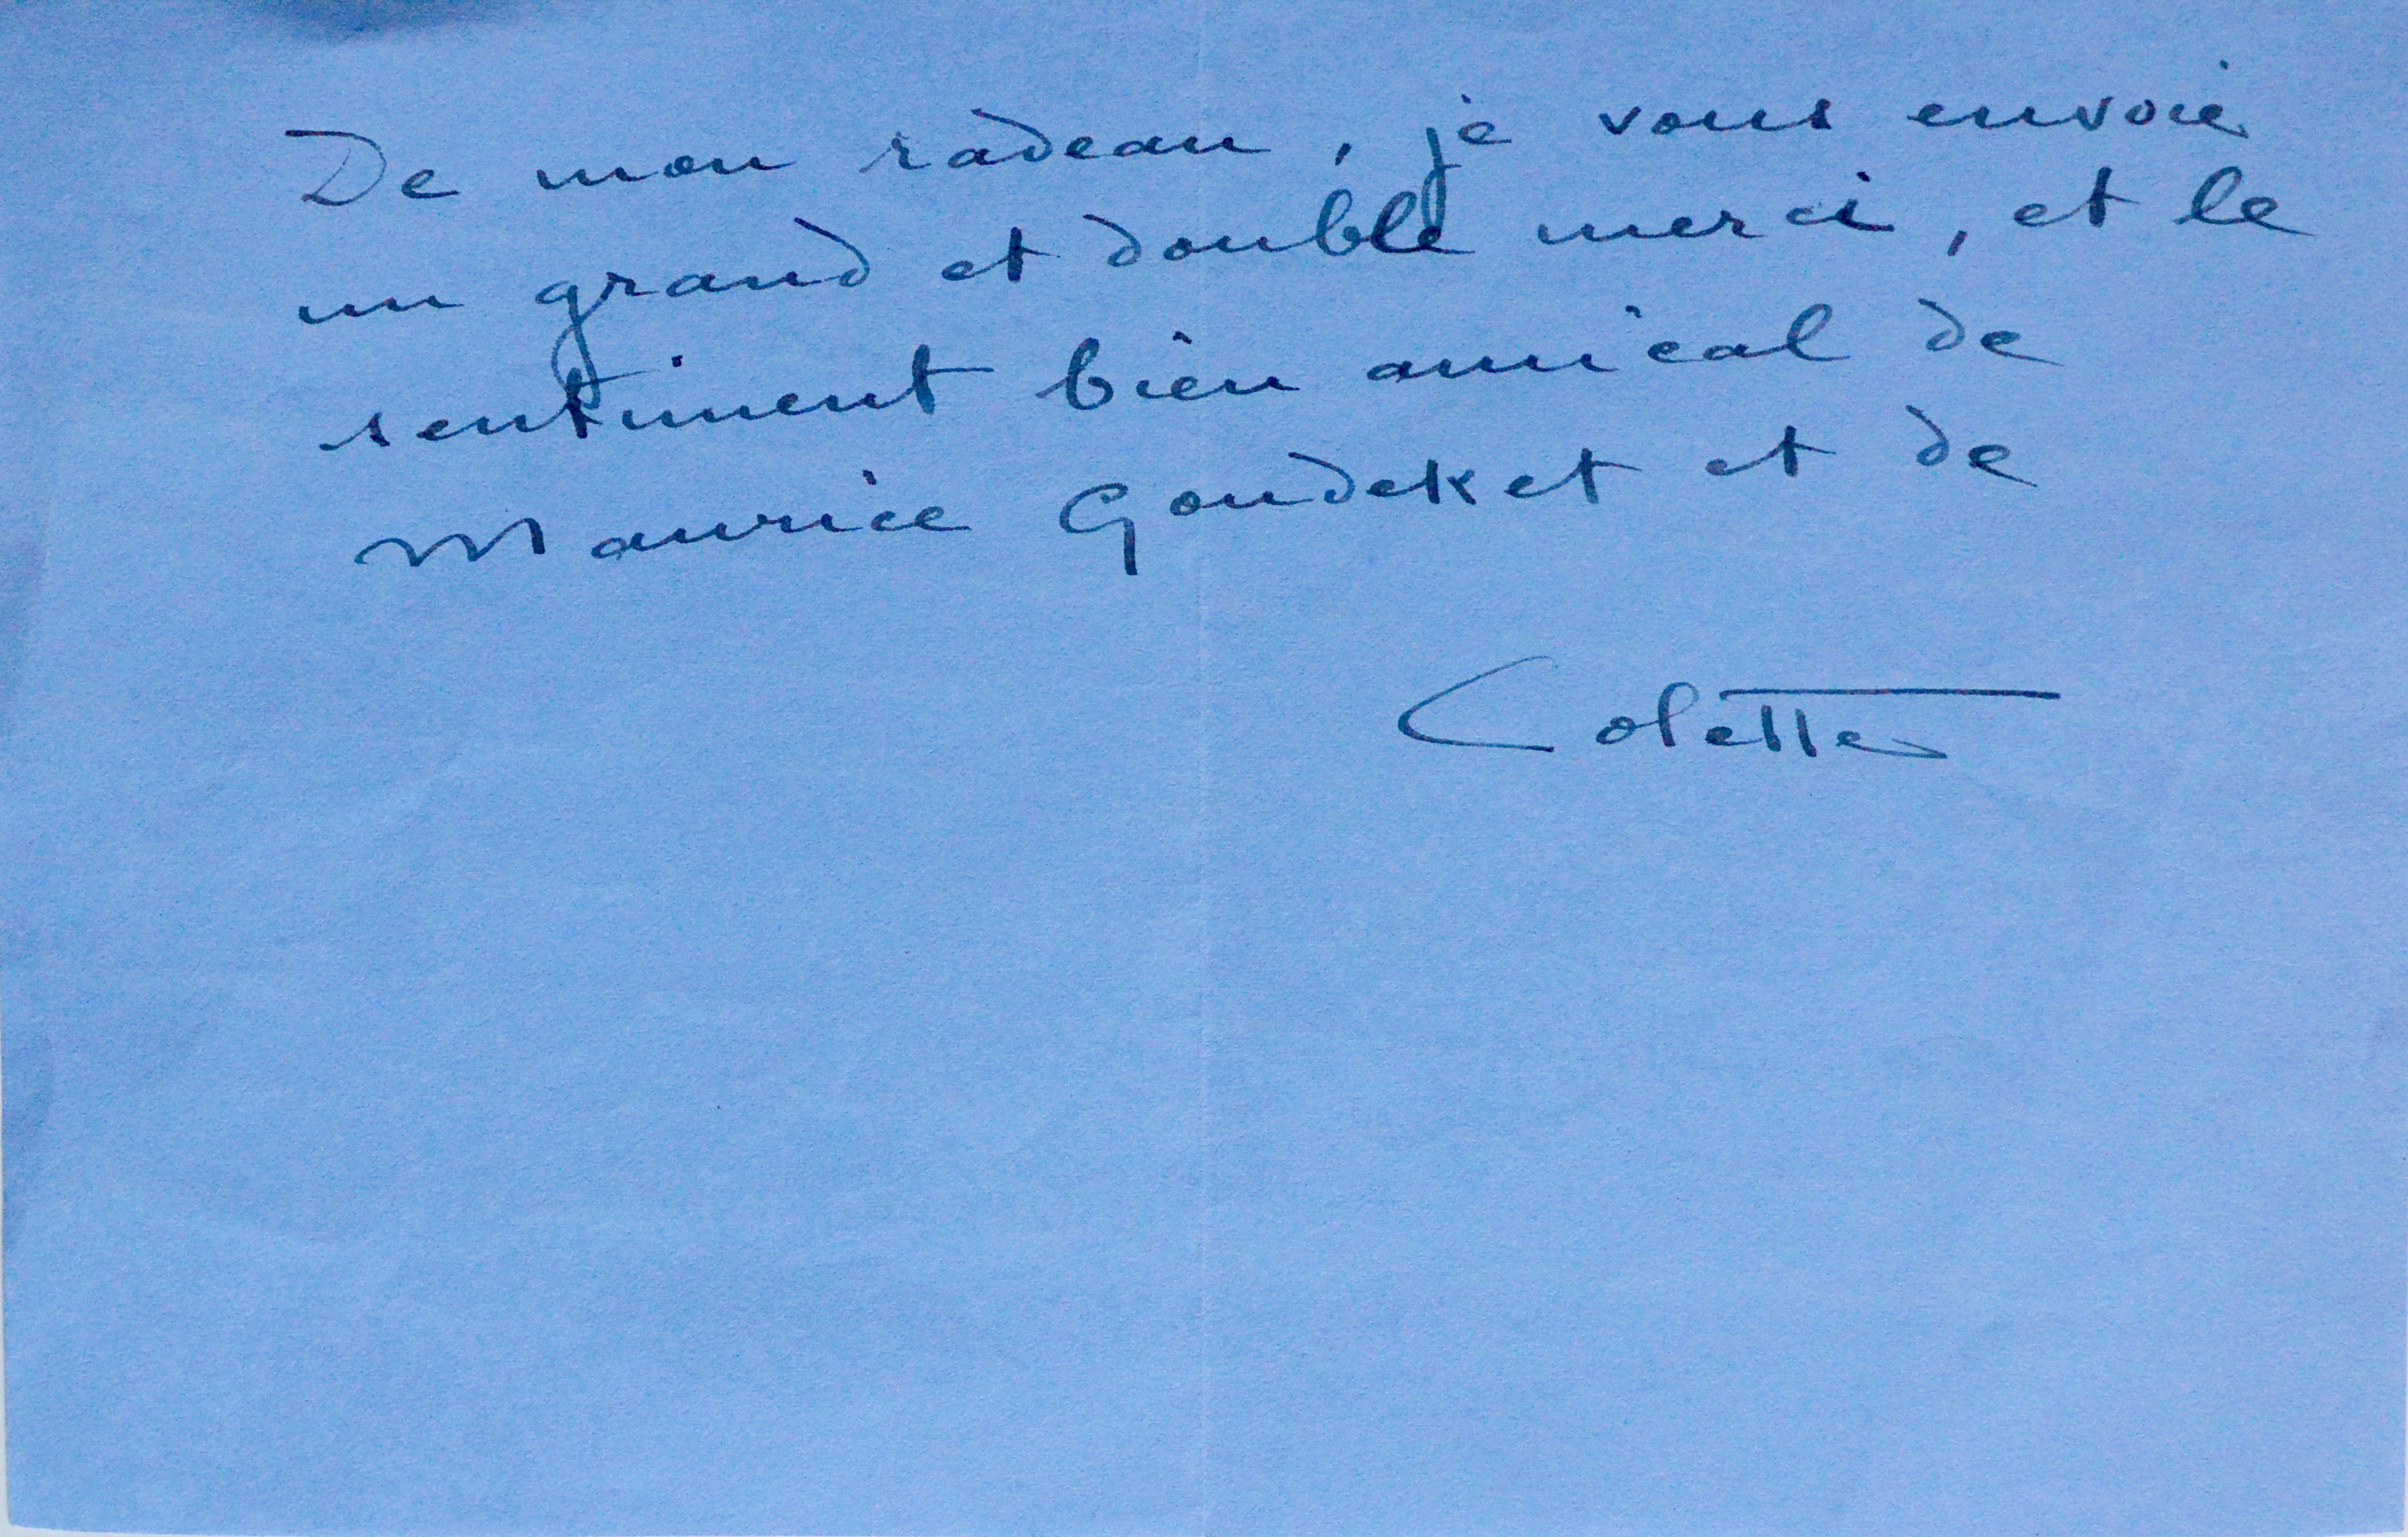 De mon radeau, je vous envoie
un grand et double merci, et le
sentiment bien amical de
Maurice Goudeket et de
Colette